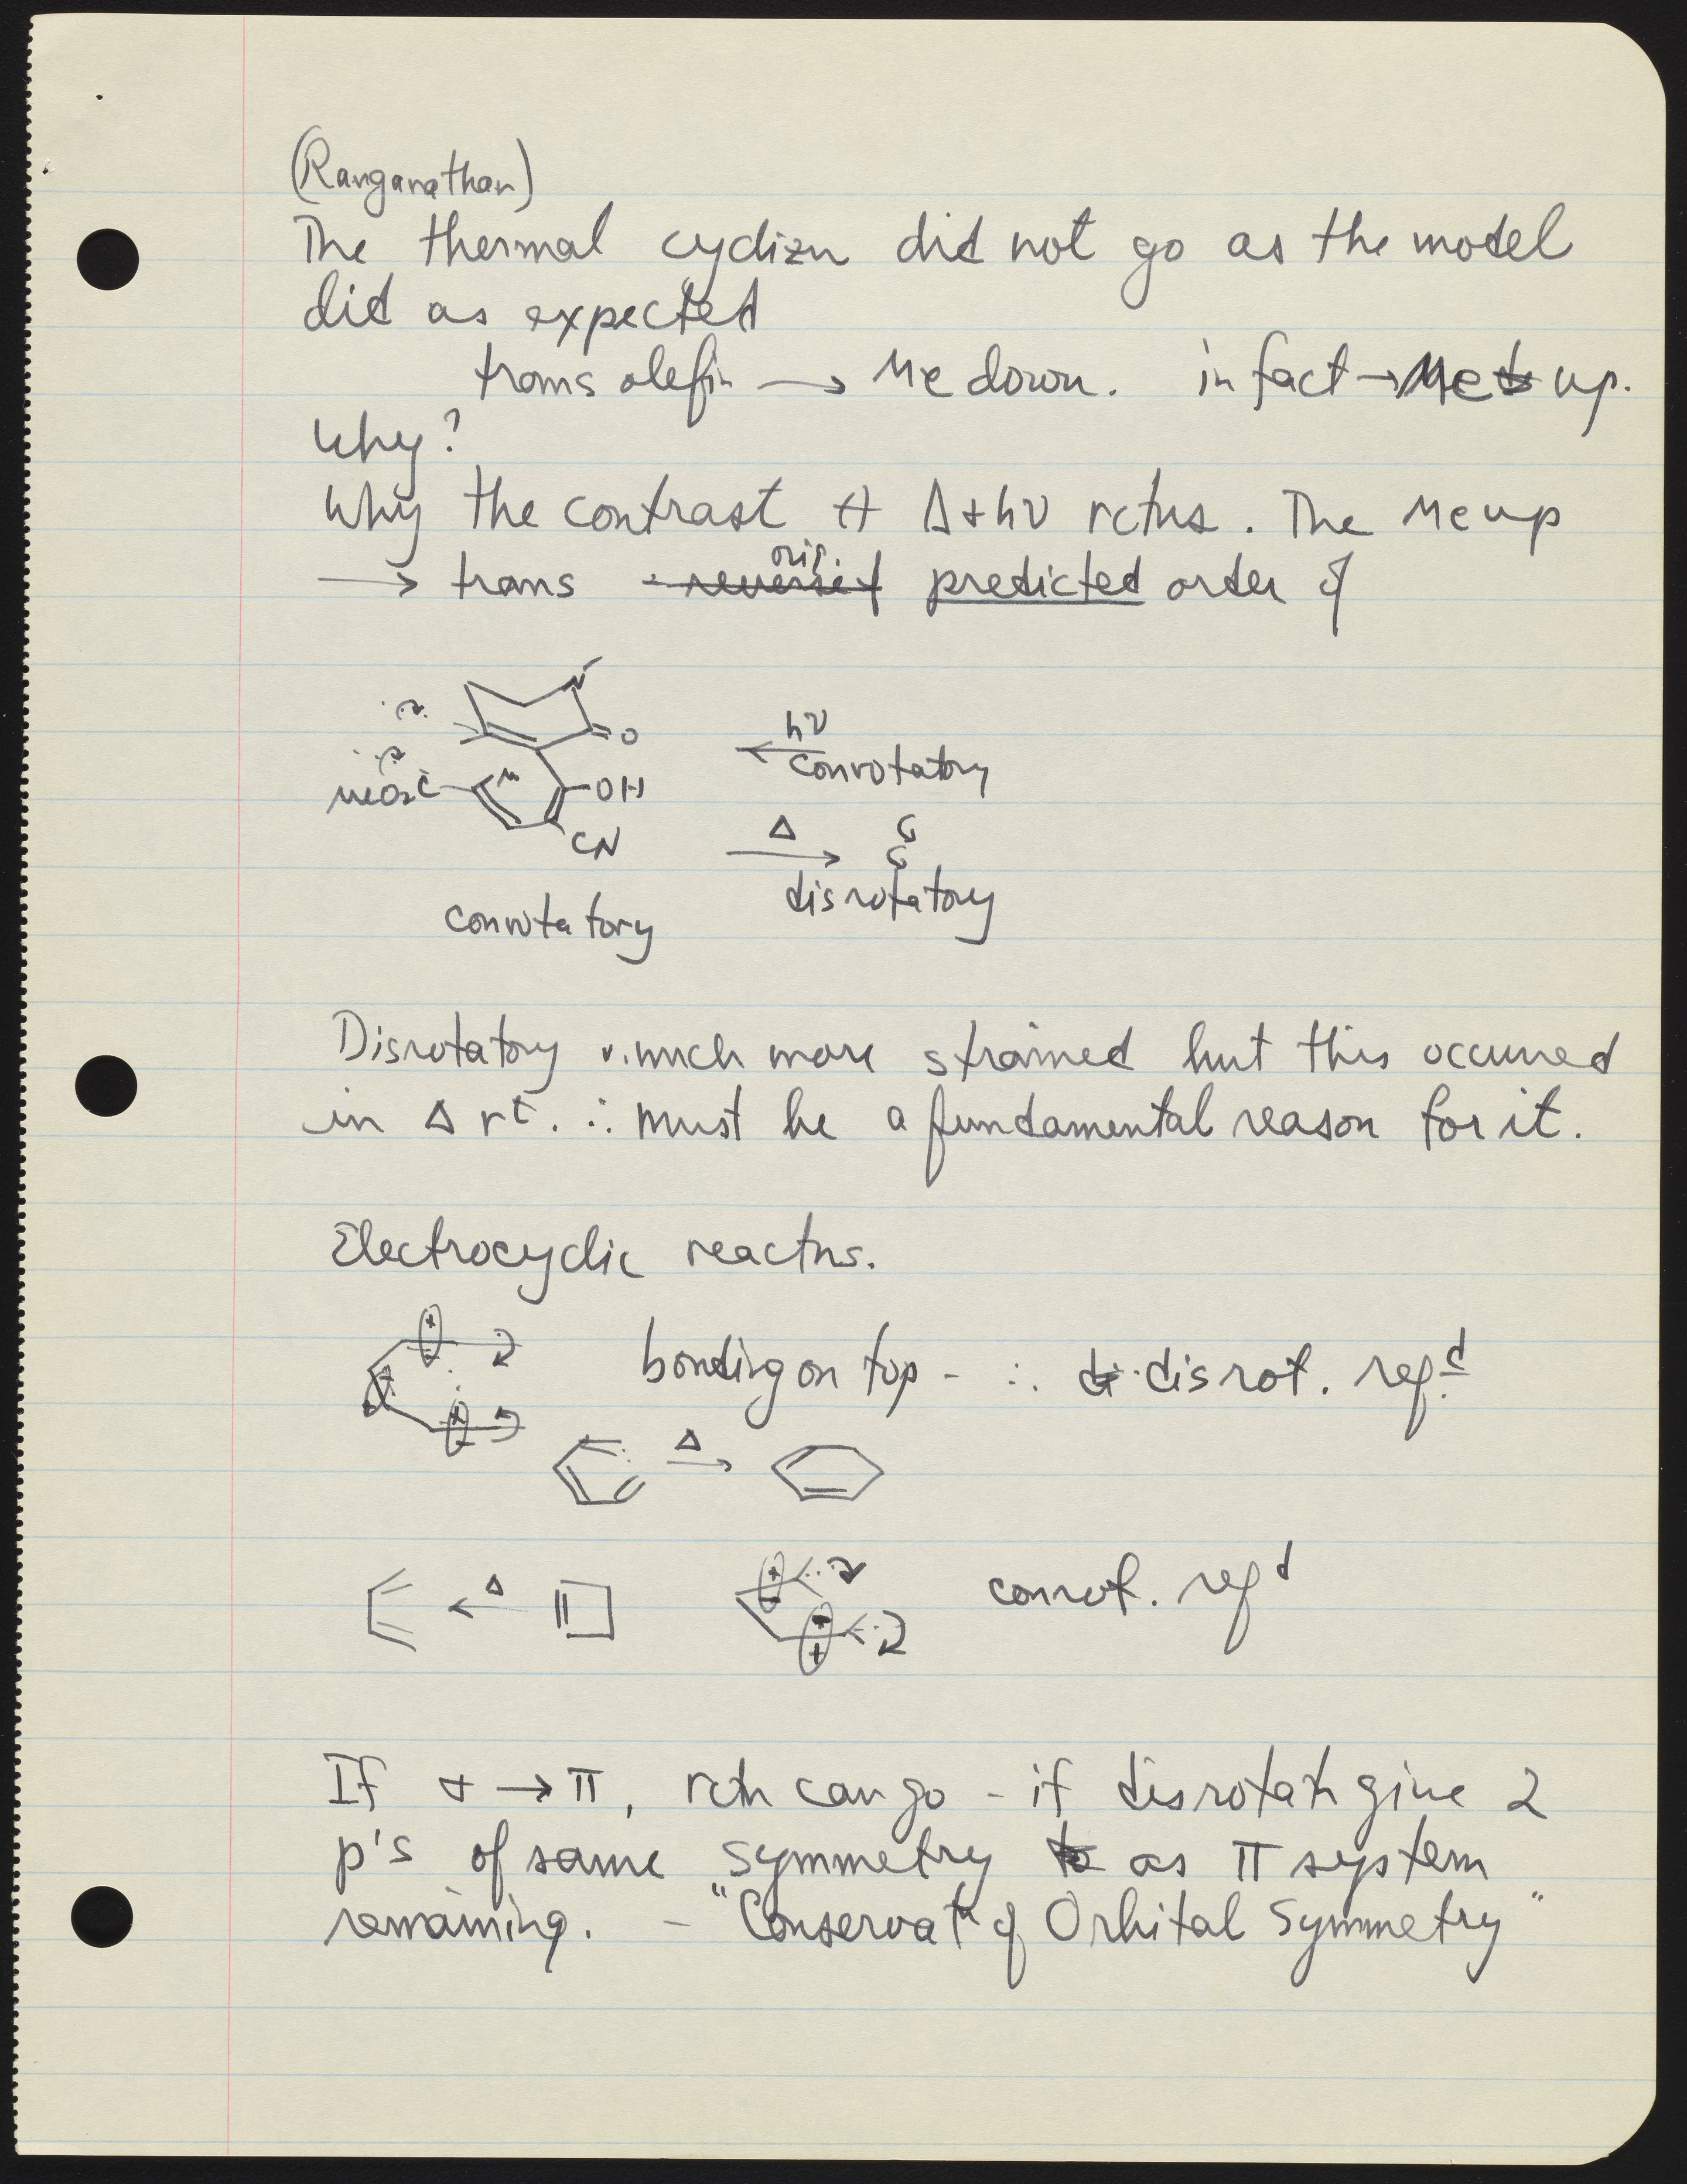 (Ranganathan)
The thermal cyclizn did not go as the model
did as expected
trans olefin → Me down. in fact → Me up.
Why?
Why the contrast Δ + hν rctns. The Me up
→ trans orig. predicted order of
N
O
MeO₂C
OH
CN
conrotatory
hν
conrotatory
Δ
disrotatory
Disrotatory v. much more strained but this occurred
in Δ r<sup>t</sup>. ∴ must be a fundamental reason for it.
Electrocyclic reactns.
bonding on top - ∴ disrot. req<sup>d</sup>
Δ
Δ
conrot. req<sup>d</sup>
If σ → π, rctn can go - if disrotatn give 2
p's of same symmetry as π system
remaining. - "Conservat<sup>n</sup> of Orbital Symmetry"